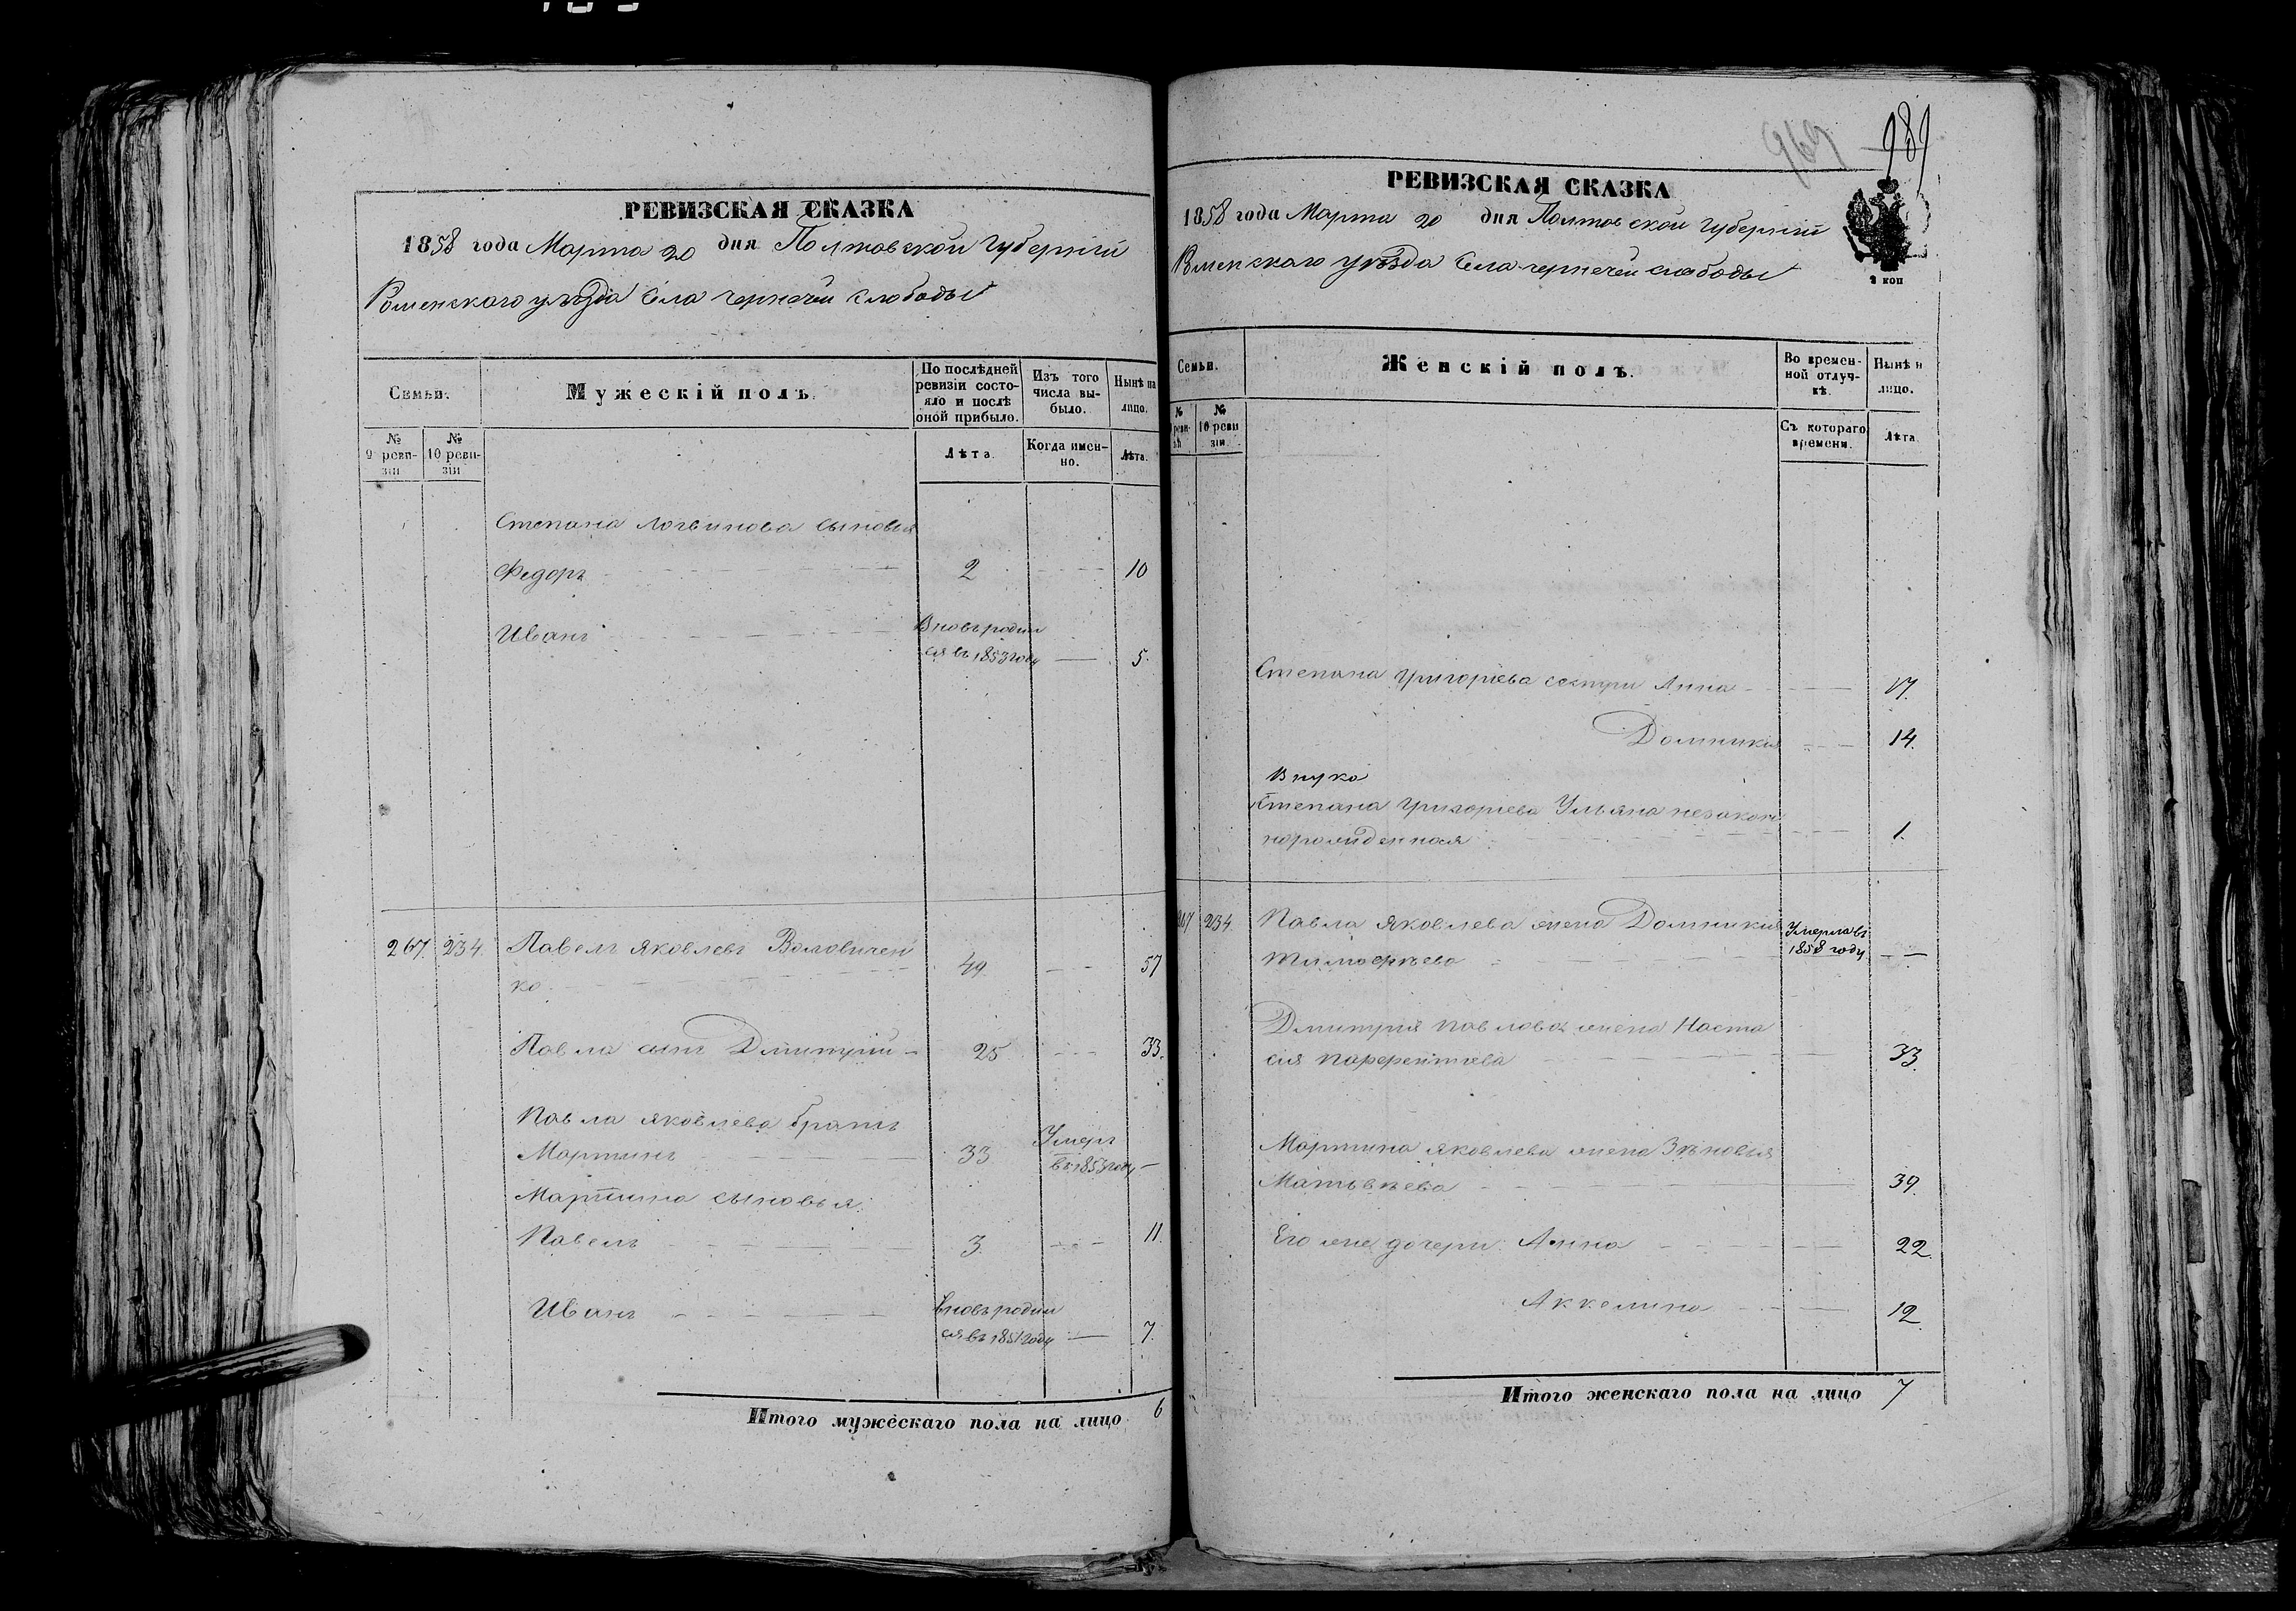 РЕВИЗСКАЯ СКАЗКА
1858 года Марта 20 дня Полтовской губернии
Роменскаго уѣзда Села чернечей слободы
Семьи.
Мужескій полъ.
По послѣдней ревизіи состояло и послѣ оной прибыло.
Изъ того числа выбыло.
Нынѣ на лицо.
№ 9 ревизіи
№ 10 ревизіи
Лѣта.
Когда именно.
Лѣта.
Степана Логвинова сыновья
Федоръ 2 10
Иванъ Вновь родил
ся въ 1853 году 5.
267. 234. Павелъ Яковлевъ Воловичен
ко 49 57
Павла сынъ Дмитрий 25 33.
Павла Яковлева братъ
Мартинъ 33 Умеръ
въ 1853 году
Мартина сыновья
Павелъ 3. 11.
Иванъ Вновь родил
ся въ 1851 году 7.
Итого мужескаго пола на лицо 6
969 989
РЕВИЗСКАЯ СКАЗКА
1858 года Марта 20 дня Полтовской губернии
Роменскаго уѣзда Села чернечей слободы
2 коп
Семьи.
Женскій полъ.
Во временной отлучкѣ.
Нынѣ н лицо.
№ 10 ревизіи.
Съ котораго времени.
Лѣта
Степана Григориева сестри Анна 17.
Домникия 14.
Внука
Степана Григориева Ульяна незакон
норожденная 1.
267 234. Павла Яковлева жена Домникия Умерла въ
Тимофѣева 1858 году
Дмитрия Павлова жена Наста
сия Парфентиева 33.
Мартина Яковлева жена Зѣновья
Матьвѣева 39.
Его же дочери Анна 22.
Аккелина 12
Итого женскаго пола на лицо 7